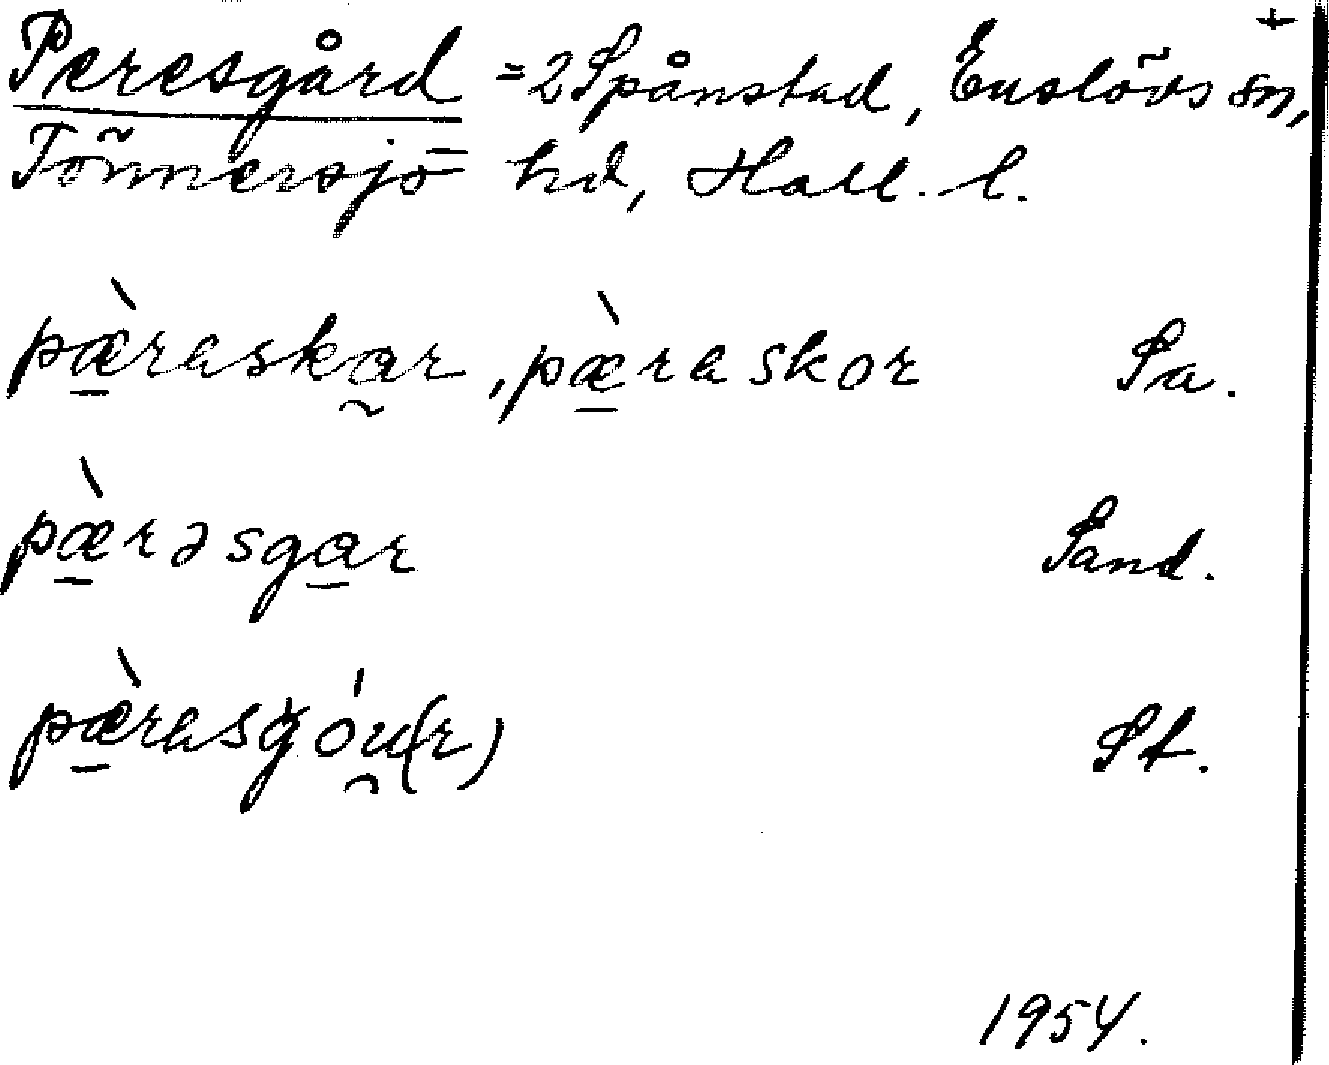 Peresgård = 2 Spånstad, Enslövs sn, +
Tönnersjö hd, Hall. l.
pæ̀raskar, pæ̀raskor Sa.
pæ̀rəsgar Sand.
pæ̀rasgóu(r) St.
1954.